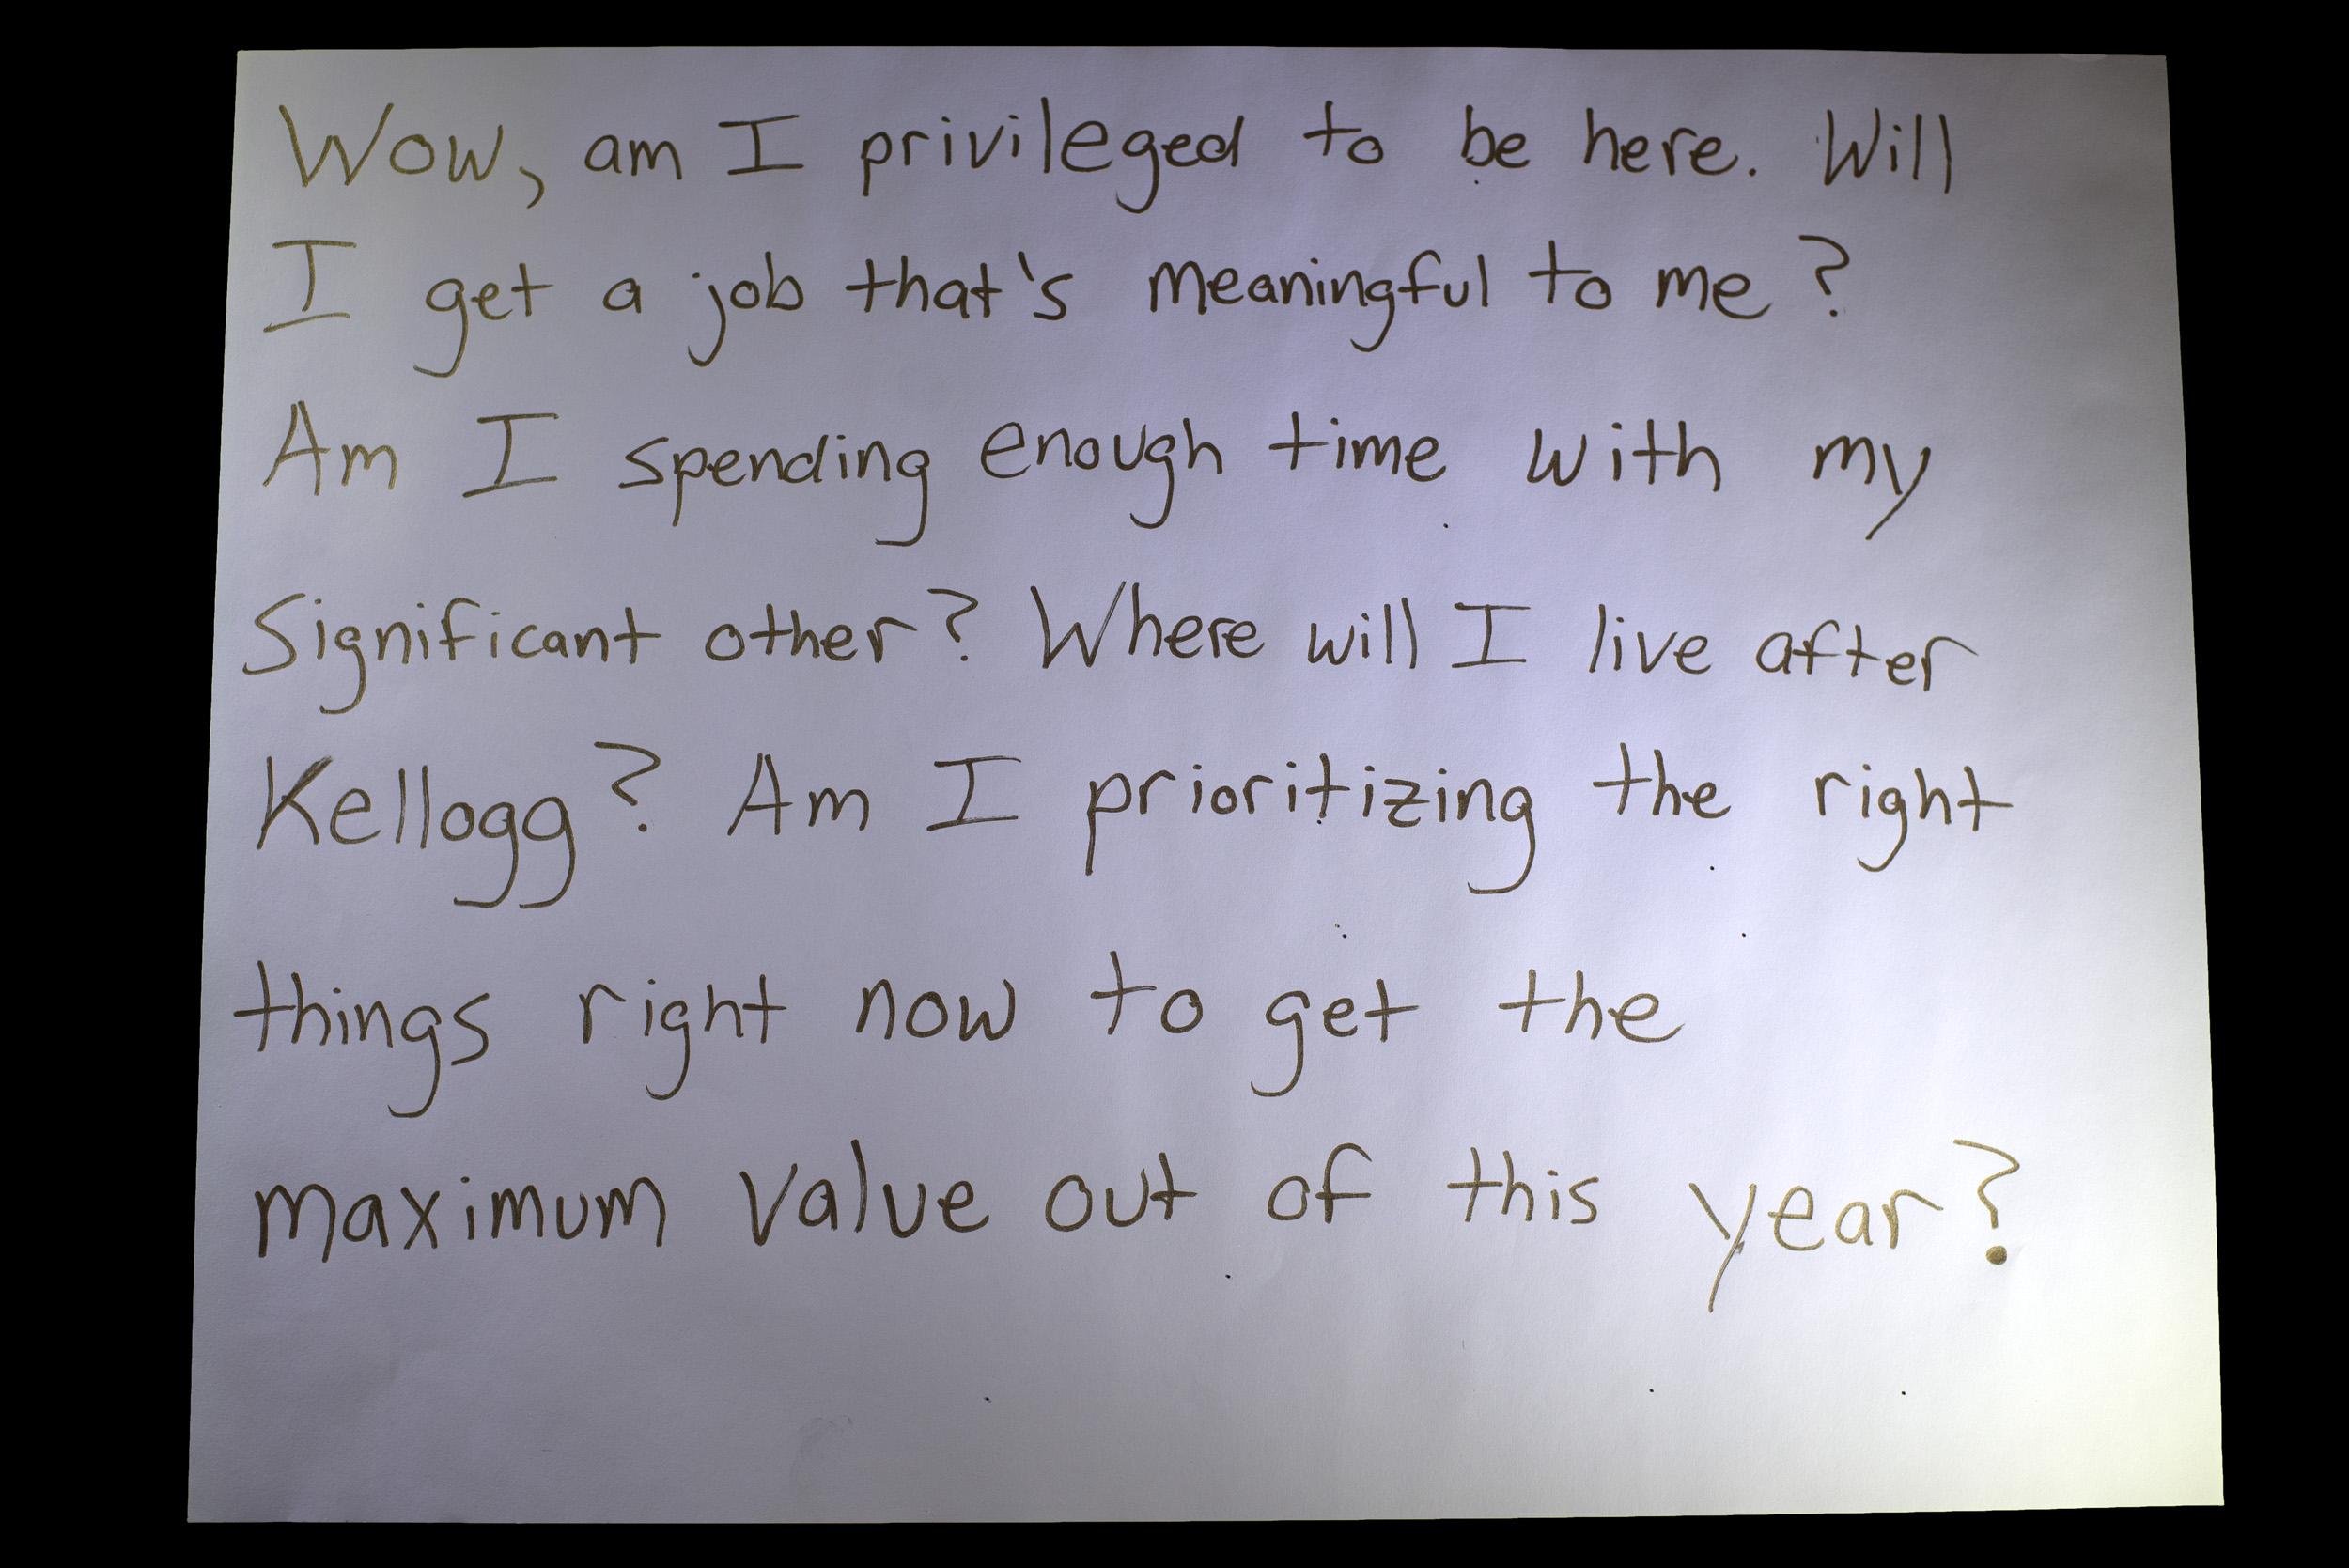 Wow, am I privileged to be here. Will
I get a job that's meaningful to me?
Am I spending enough time with my
Significant other? Where will I live after
Kellogg? Am I prioritizing the right
things right now to get the
maximum value out of this year?